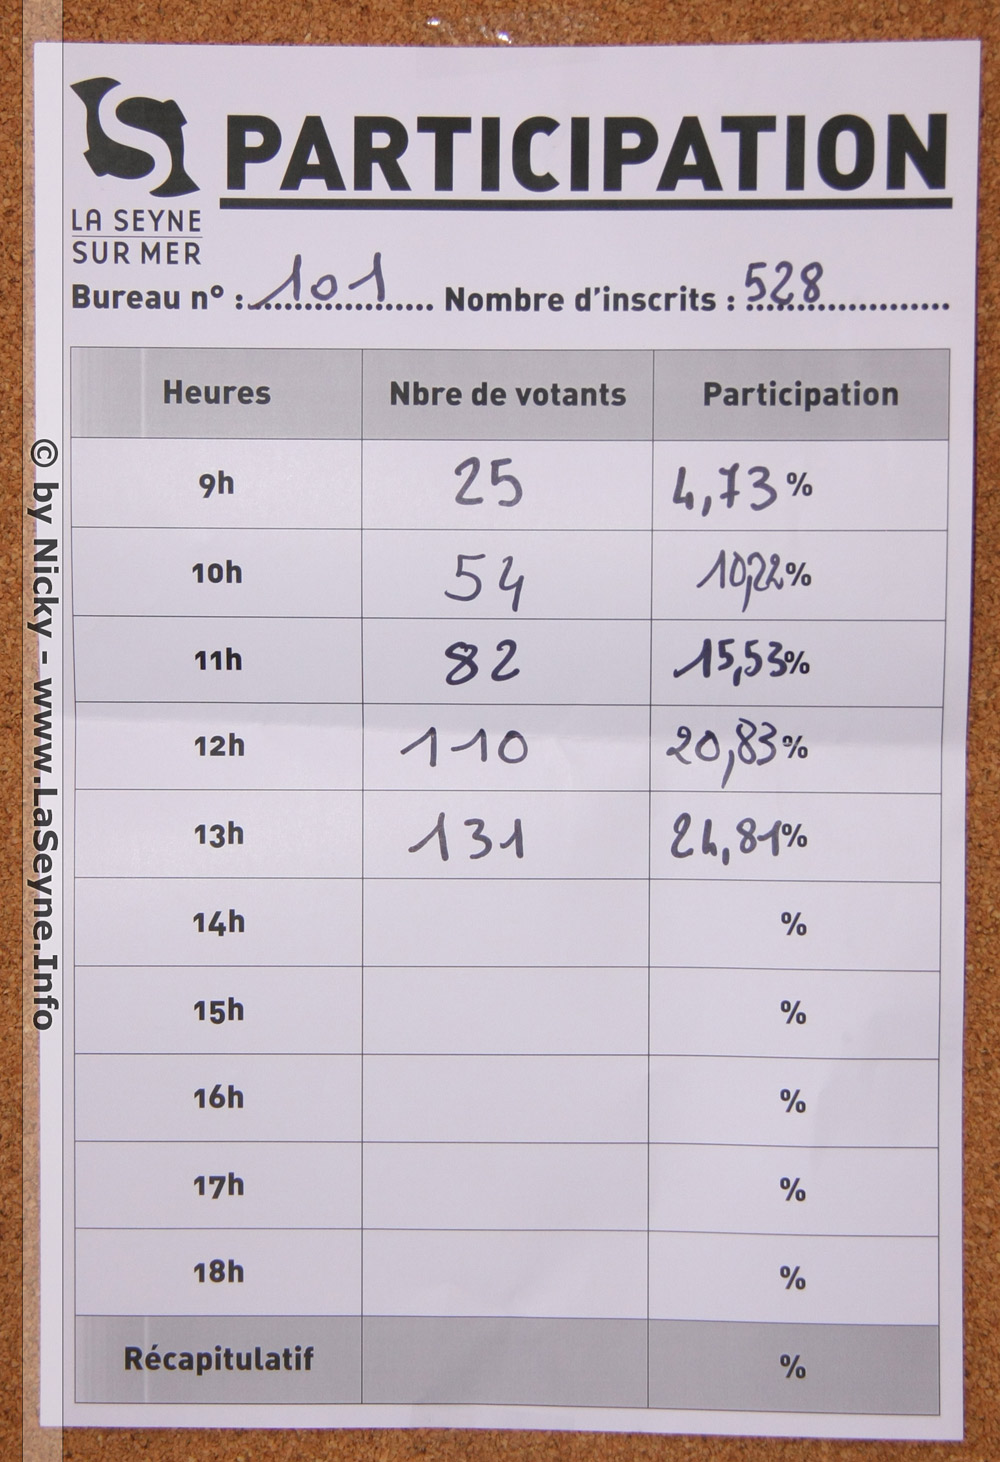 PARTICIPATION
LA SEYNE
SUR MER
Bureau n° : 101 Nombre d'inscrits : 528
Heures Nbre de votants Participation
9h 25 4,73 %
10h 54 10,22 %
11h 82 15,53 %
12h 110 20,83 %
13h 131 24,81 %
14h %
15h %
16h %
17h %
18h %
Récapitulatif %
© by Nicky - www.LaSeyne.Info